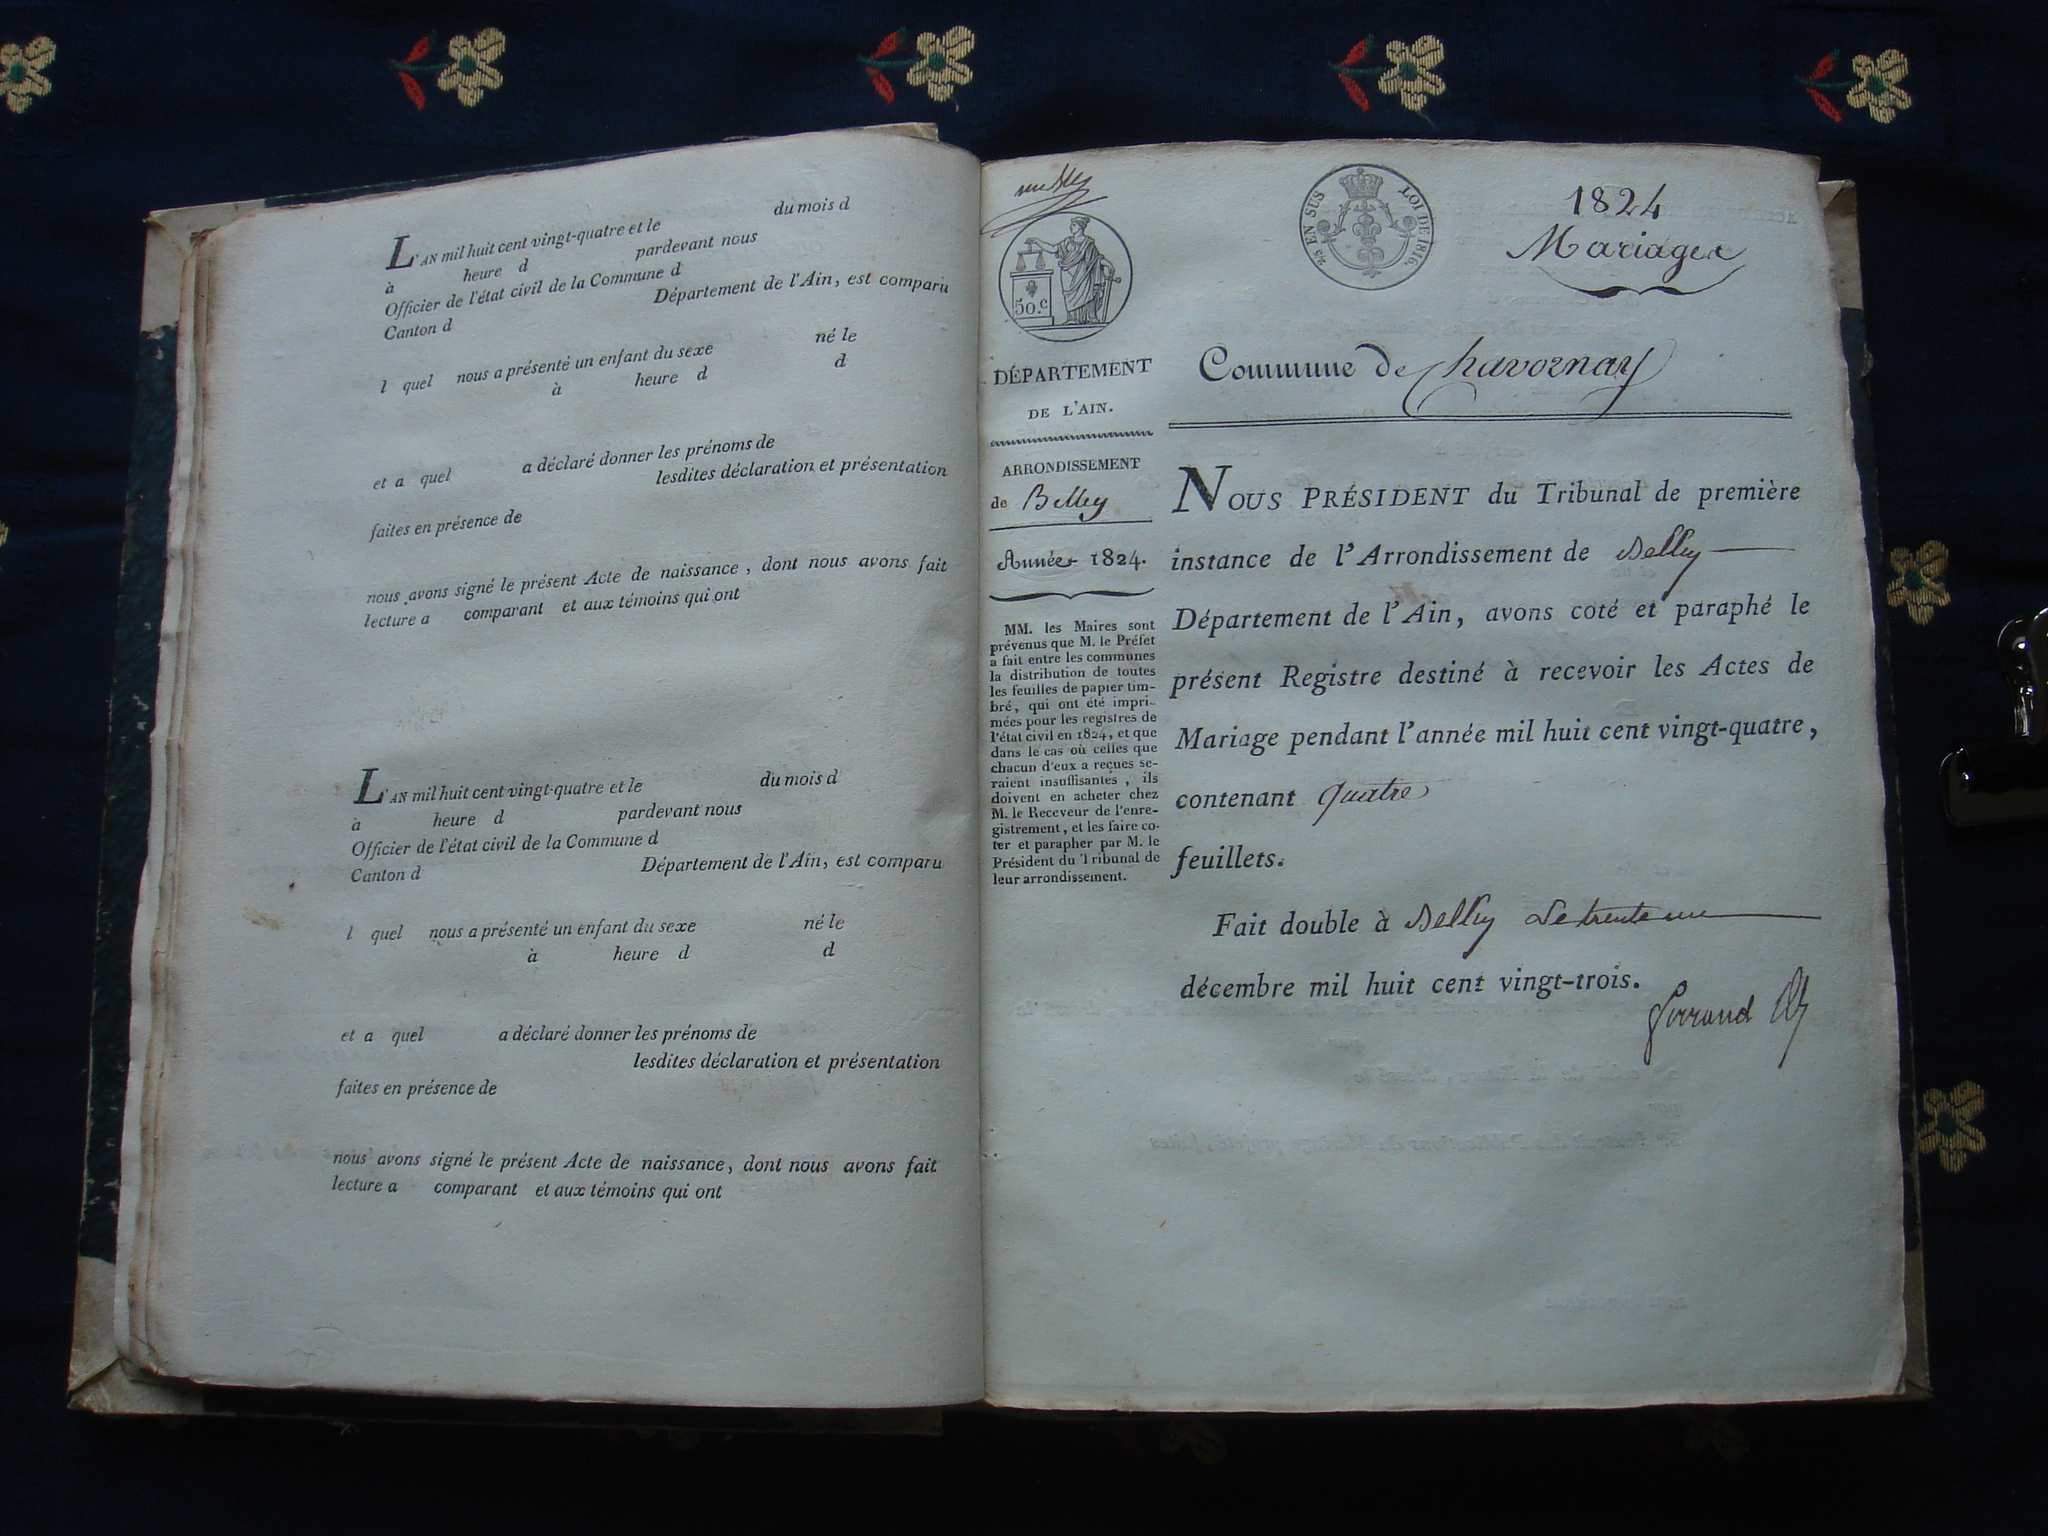 L'AN mil huit cent vingt-quatre et le du mois d
à heure d pardevant nous
Officier de l'état civil de la Commune d
Canton d Département de l'Ain, est comparu
l quel nous a présenté un enfant du sexe né le
à heure d d
et a quel a déclaré donner les prénoms de
lesdites déclaration et présentation
faites en présence de
nous avons signé le présent Acte de naissance, dont nous avons fait
lecture a comparant et aux témoins qui ont
L'AN mil huit cent vingt-quatre et le du mois d
à heure d pardevant nous
Officier de l'état civil de la Commune d
Canton d Département de l'Ain, est comparu
l quel nous a présenté un enfant du sexe né le
à heure d d
et a quel a déclaré donner les prénoms de
lesdites déclaration et présentation
faites en présence de
nous avons signé le présent Acte de naissance, dont nous avons fait
lecture a comparant et aux témoins qui ont
50.c
DÉPARTEMENT
DE L'AIN.
ARRONDISSEMENT
de Belley
Année 1824.
MM. les Maires sont
prévenus que M. le Préfet
a fait entre les communes
la distribution de toutes
les feuilles de papier tim-
bré, qui ont été impri-
mées pour les registres de
l'état civil en 1824, et que
dans le cas où celles que
chacun d'eux a reçues se-
raient insuffisantes, ils
doivent en acheter chez
M. le Receveur de l'enre-
gistrement, et les faire co-
ter et parapher par M. le
Président du Tribunal de
leur arrondissement.
25 EN SUS LOI DE 1816.
1824
Mariages
Commune de Chavornay
NOUS PRÉSIDENT du Tribunal de première
instance de l'Arrondissement de Belley
Département de l'Ain, avons coté et paraphé le
présent Registre destiné à recevoir les Actes de
Mariage pendant l'année mil huit cent vingt-quatre,
contenant quatre
feuillets.
Fait double à Belley Le trente un
décembre mil huit cent vingt-trois.